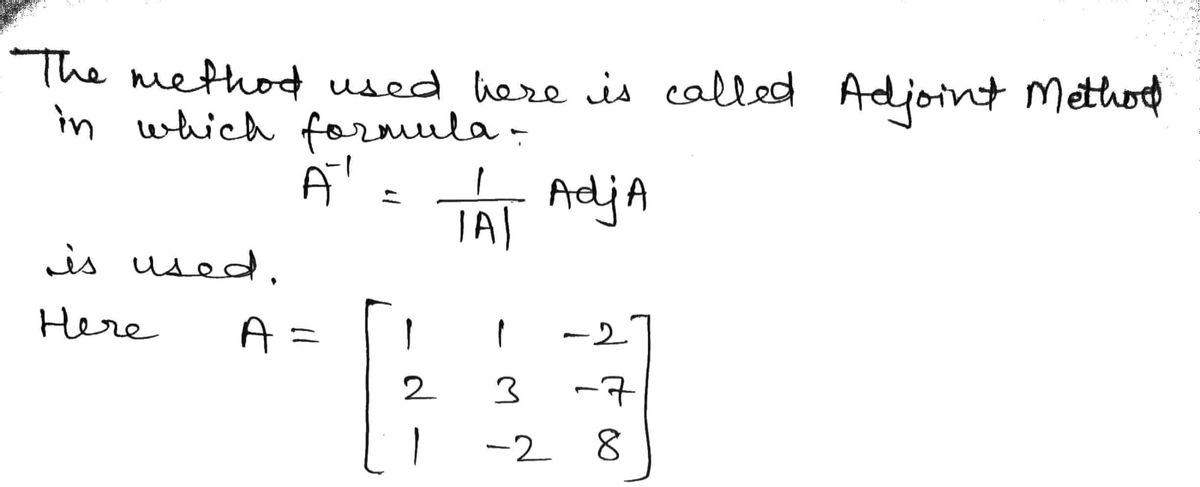 The method used here is called Adjoint Method
in which formula -
A⁻¹ = 1/|A| Adj A
is used.
Here A = [ 1 1 -2
2 3 -7
1 -2 8 ]